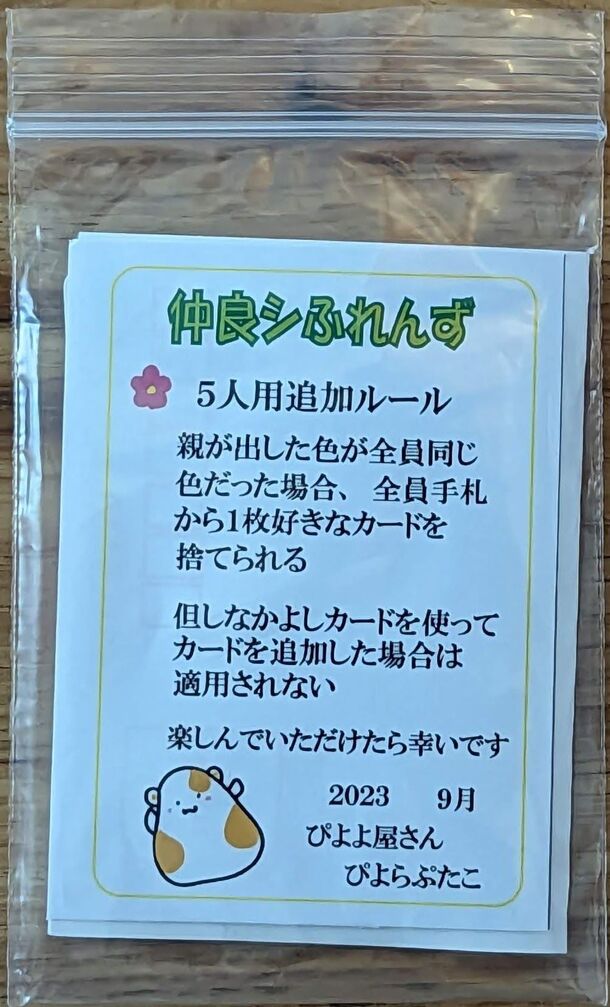 仲良シふれんず
5人用追加ルール
親が出した色が全員同じ
色だった場合、全員手札
から1枚好きなカードを
捨てられる
但しなかよしカードを使って
カードを追加した場合は
適用されない
楽しんでいただけたら幸いです
2023 9月
ぴよよ屋さん
ぴよらぷたこ